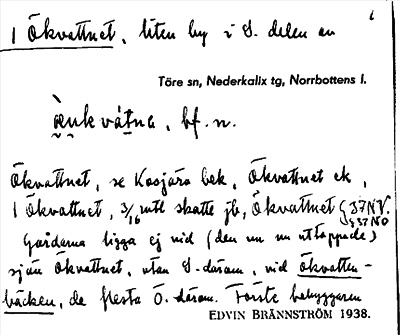 6
1 Ökvattnet, liten by i S. delen av
Töre sn, Nederkalix tg, Norrbottens l.
kvátna, bf. n.
Ökvattnet, se Kosjärv bek, Ökvattnet ek,
1 Ökvattnet, 3/16 mtl skatte jb, Ökvattnet § 37 NV. § 37 NO
Gårdarna ligga ej vid (den nu uttappade)
sjön Ökvattnet, utan S. därom, vid Ökvatten-
bäcken, de flesta Ö. därom. Förste bebyggaren
EDVIN BRÄNNSTRÖM 1938.